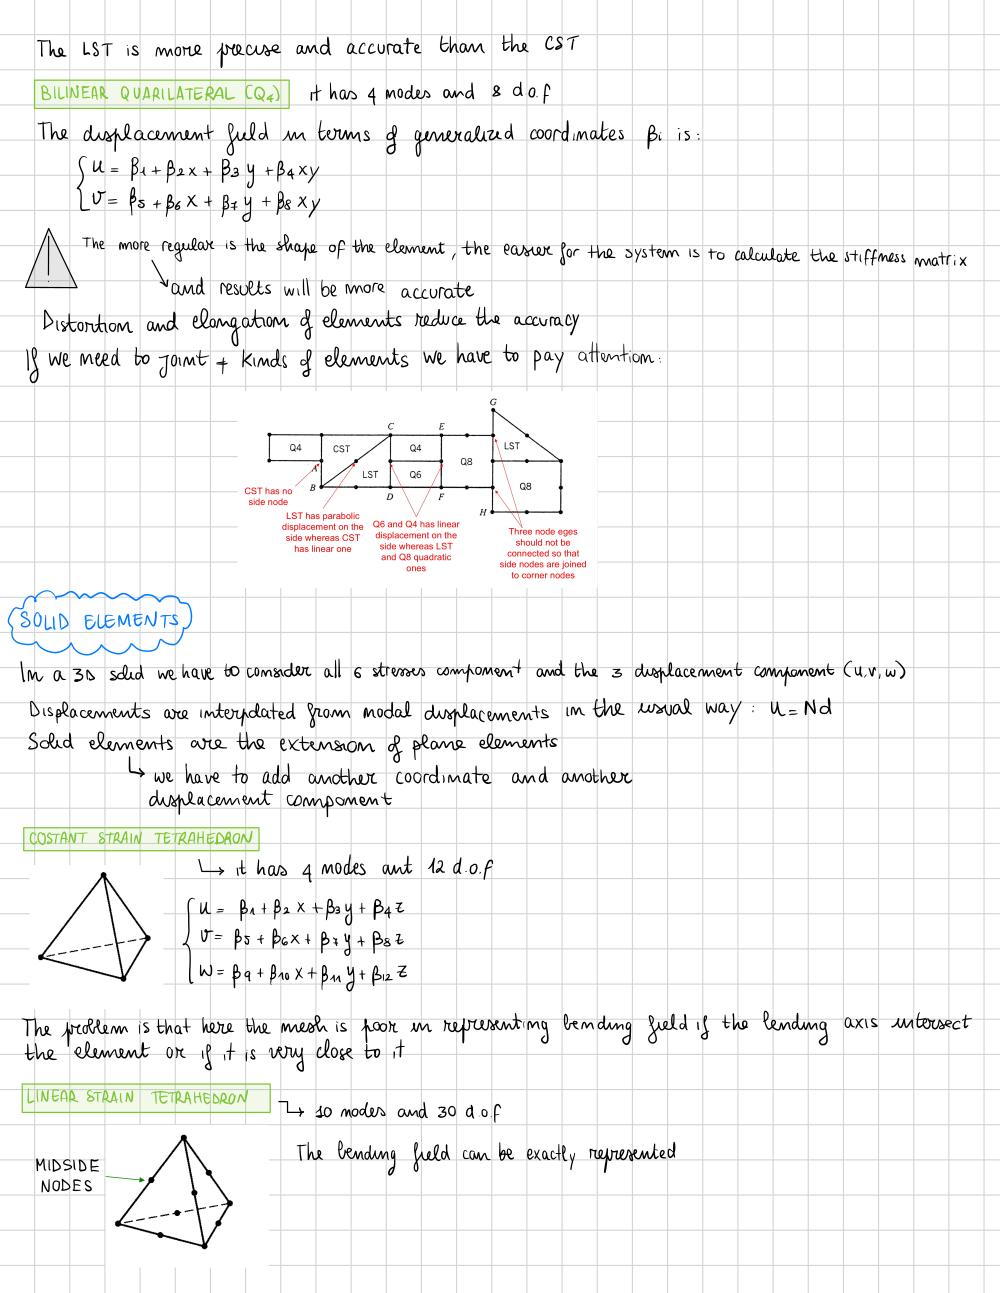 The LST is more precise and accurate than the CST
BILINEAR QUARILATERAL (Q4) it has 4 nodes and 8 d.o.f
The displacement field in terms of generalized coordinates βi is:
u = β1 + β2x + β3y + β4xy
v = β5 + β6x + β7y + β8xy
The more regular is the shape of the element, the easier for the system is to calculate the stiffness matrix
and results will be more accurate
Distortion and elongation of elements reduce the accuracy
If we need to joint ≠ kinds of elements we have to pay attention:
G
C E
Q4 CST Q4 Q8 LST
A
LST Q6 Q8
B D F
H
CST has no
side node
LST has parabolic
displacement on the
side whereas CST
has linear one
Q6 and Q4 has linear
displacement on the
side whereas LST
and Q8 quadratic
ones
Three node eges
should not be
connected so that
side nodes are joined
to corner nodes
SOLID ELEMENTS
In a 3D solid we have to consider all 6 stresses component and the 3 displacement component (u,v,w)
Displacements are interpolated from nodal displacements in the usual way: u = Nd
Solid elements are the extension of plane elements
↳ we have to add another coordinate and another
displacement component
COSTANT STRAIN TETRAHEDRON
↳ it has 4 nodes ant 12 d.o.f
u = β1 + β2x + β3y + β4z
v = β5 + β6x + β7y + β8z
w = β9 + β10x + β11y + β12z
The problem is that here the mesh is poor in representing bending field if the bending axis intersect
the element or if it is very close to it
LINEAR STRAIN TETRAHEDRON ↳ 10 nodes and 30 d.o.f
The bending field can be exactly represented
MIDSIDE
NODES